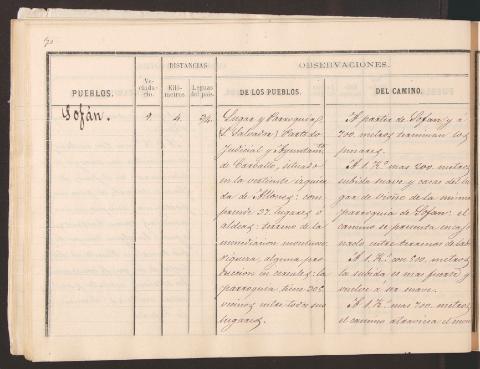 DISTANCIAS.
OBSERVACIONES.
PUEBLOS.
Vecindario.
Kilómetros
Leguas del país.
DE LOS PUEBLOS.
DEL CAMINO.
Sofán.
9.
4.
3/4.
Lugar y Parroquia (
S. Salvador) Partido
Judicial y Ayuntamto
de Carballo, situado
en la vertiente izquier
da de Allones: com-
prende 37 lugares o
aldeas: terreno de la
inmediacion montuoso
alguna pro-
duccion en cereales: la
parroquia tiene
vecinos entre todos sus
lugares.
A partir de Sofan y á
700. metros terminan los
pinares.
A 1. Kº. mas 200. metros
subida suave y casas del lu
gar de de la misma
parroquia de Sofan: el
camino se presenta encajo
nado entre terrenos de lab
A 1. Kº. con 500. metros
la subida es mas fuerte y
vuelve á ser suave.
A 1. Kº. mas 700. metros
el camino atraviesa el mon